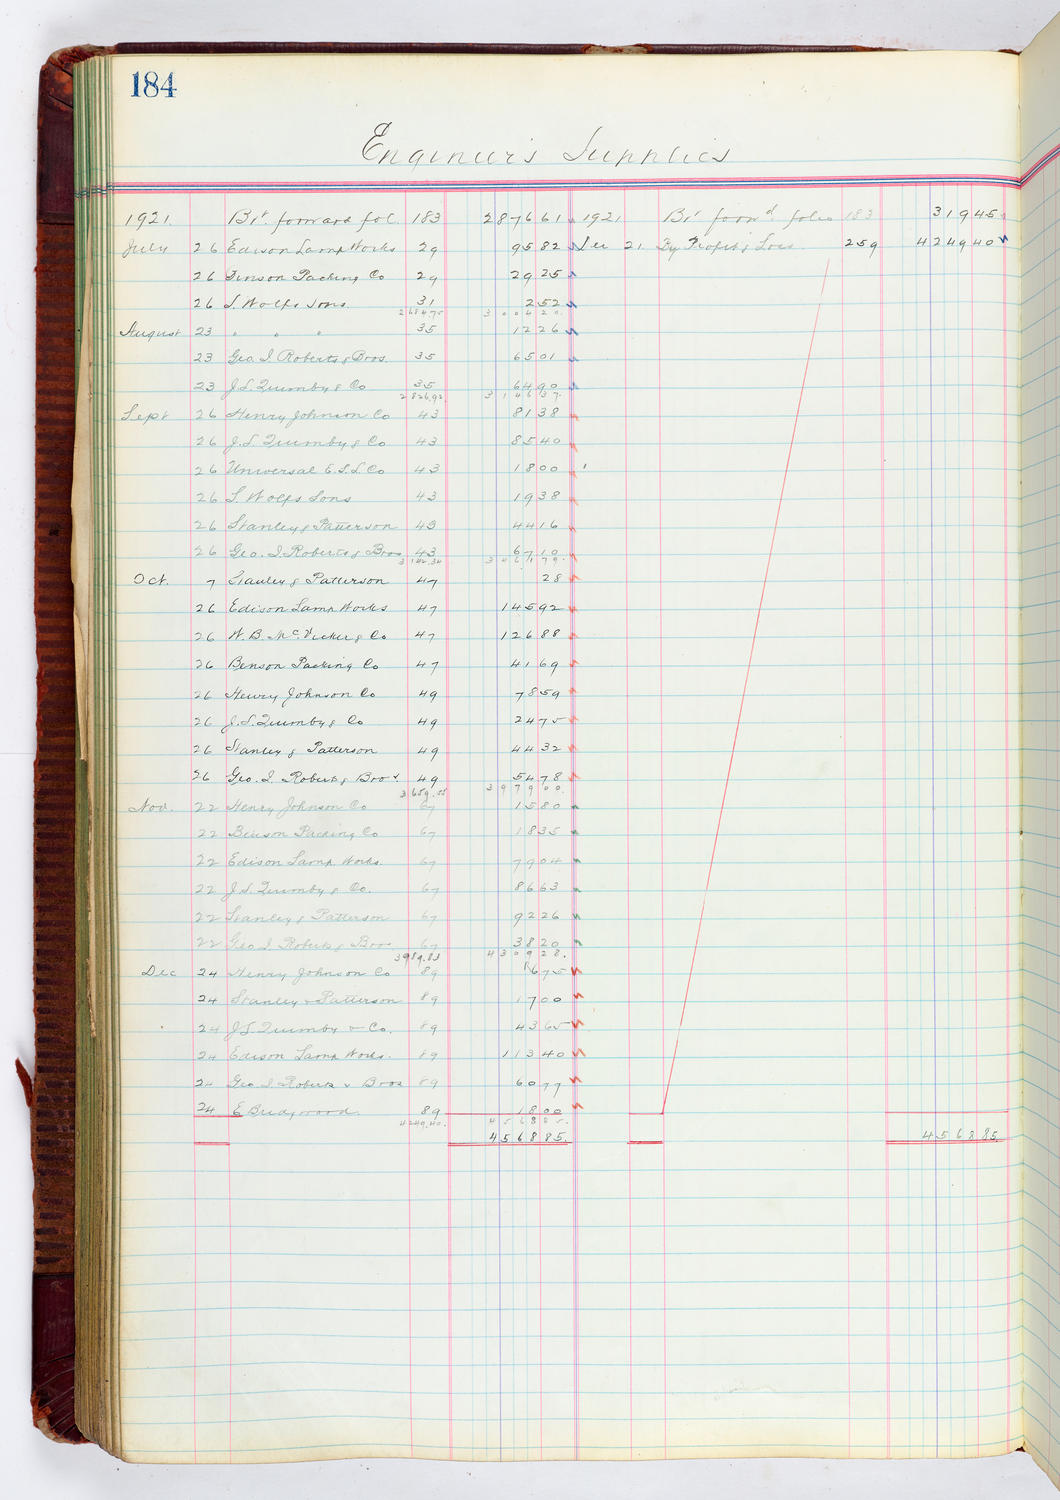 184
Engineer's Supplies
1921. Brt forward fol. 183 287661 1921 Brt forwd folio 183 31945
July 26 Edison Lamp Works 29 9582 Dec 21. By Profit & Loss 259 424940
26 Benson Packing Co 29 2925
26 S. Wolfs Sons. 31 252
2684.75 300420.
August 23 " " " 35 1226
23 Geo. I. Roberts & Bros. 35 6501
23 J.L. Quimby & Co 35 6490
2826.92 314637.
Sept 26 Henry Johnson Co 43 8138
26 J.L. Quimby & Co 43 8540
26 Universal E.S.L. Co 43 1800
26 S. Wolfs Sons 43 1938
26 Stanley & Patterson 43 4416
26 Geo. I. Roberts & Bros 43 6710
3142.34 346179.
Oct. 7 Stanley & Patterson 47 28
26 Edison Lamp Works 47 14592
26 W.B. McVicker & Co 47 12688
26 Benson Packing Co 47 4169
26 Henry Johnson Co 49 7859
26 J.L. Quimby & Co 49 2475
26 Stanley & Patterson 49 4432
26 Geo. I. Roberts & Bros. 49 5478
3659.55 397900.
Nov. 22 Henry Johnson Co 67 1580
22 Benson Packing Co 67 1835
22 Edison Lamp Works. 67 7904
22 J.L. Quimby & Co. 67 8663
22 Stanley & Patterson 67 9226
22 Geo I. Roberts & Bros. 67 3820
3989.83 430928.
Dec 24 Henry Johnson Co 89 1675
24 Stanley & Patterson 89 1700
24 J.L. Quimby & Co. 89 4365
24 Edison Lamp Works. 89 11340
24 Geo. I. Roberts & Bros 89 6077
24 E Bridgwood. 89 1800
4249.40. 456885.
456885. 456885